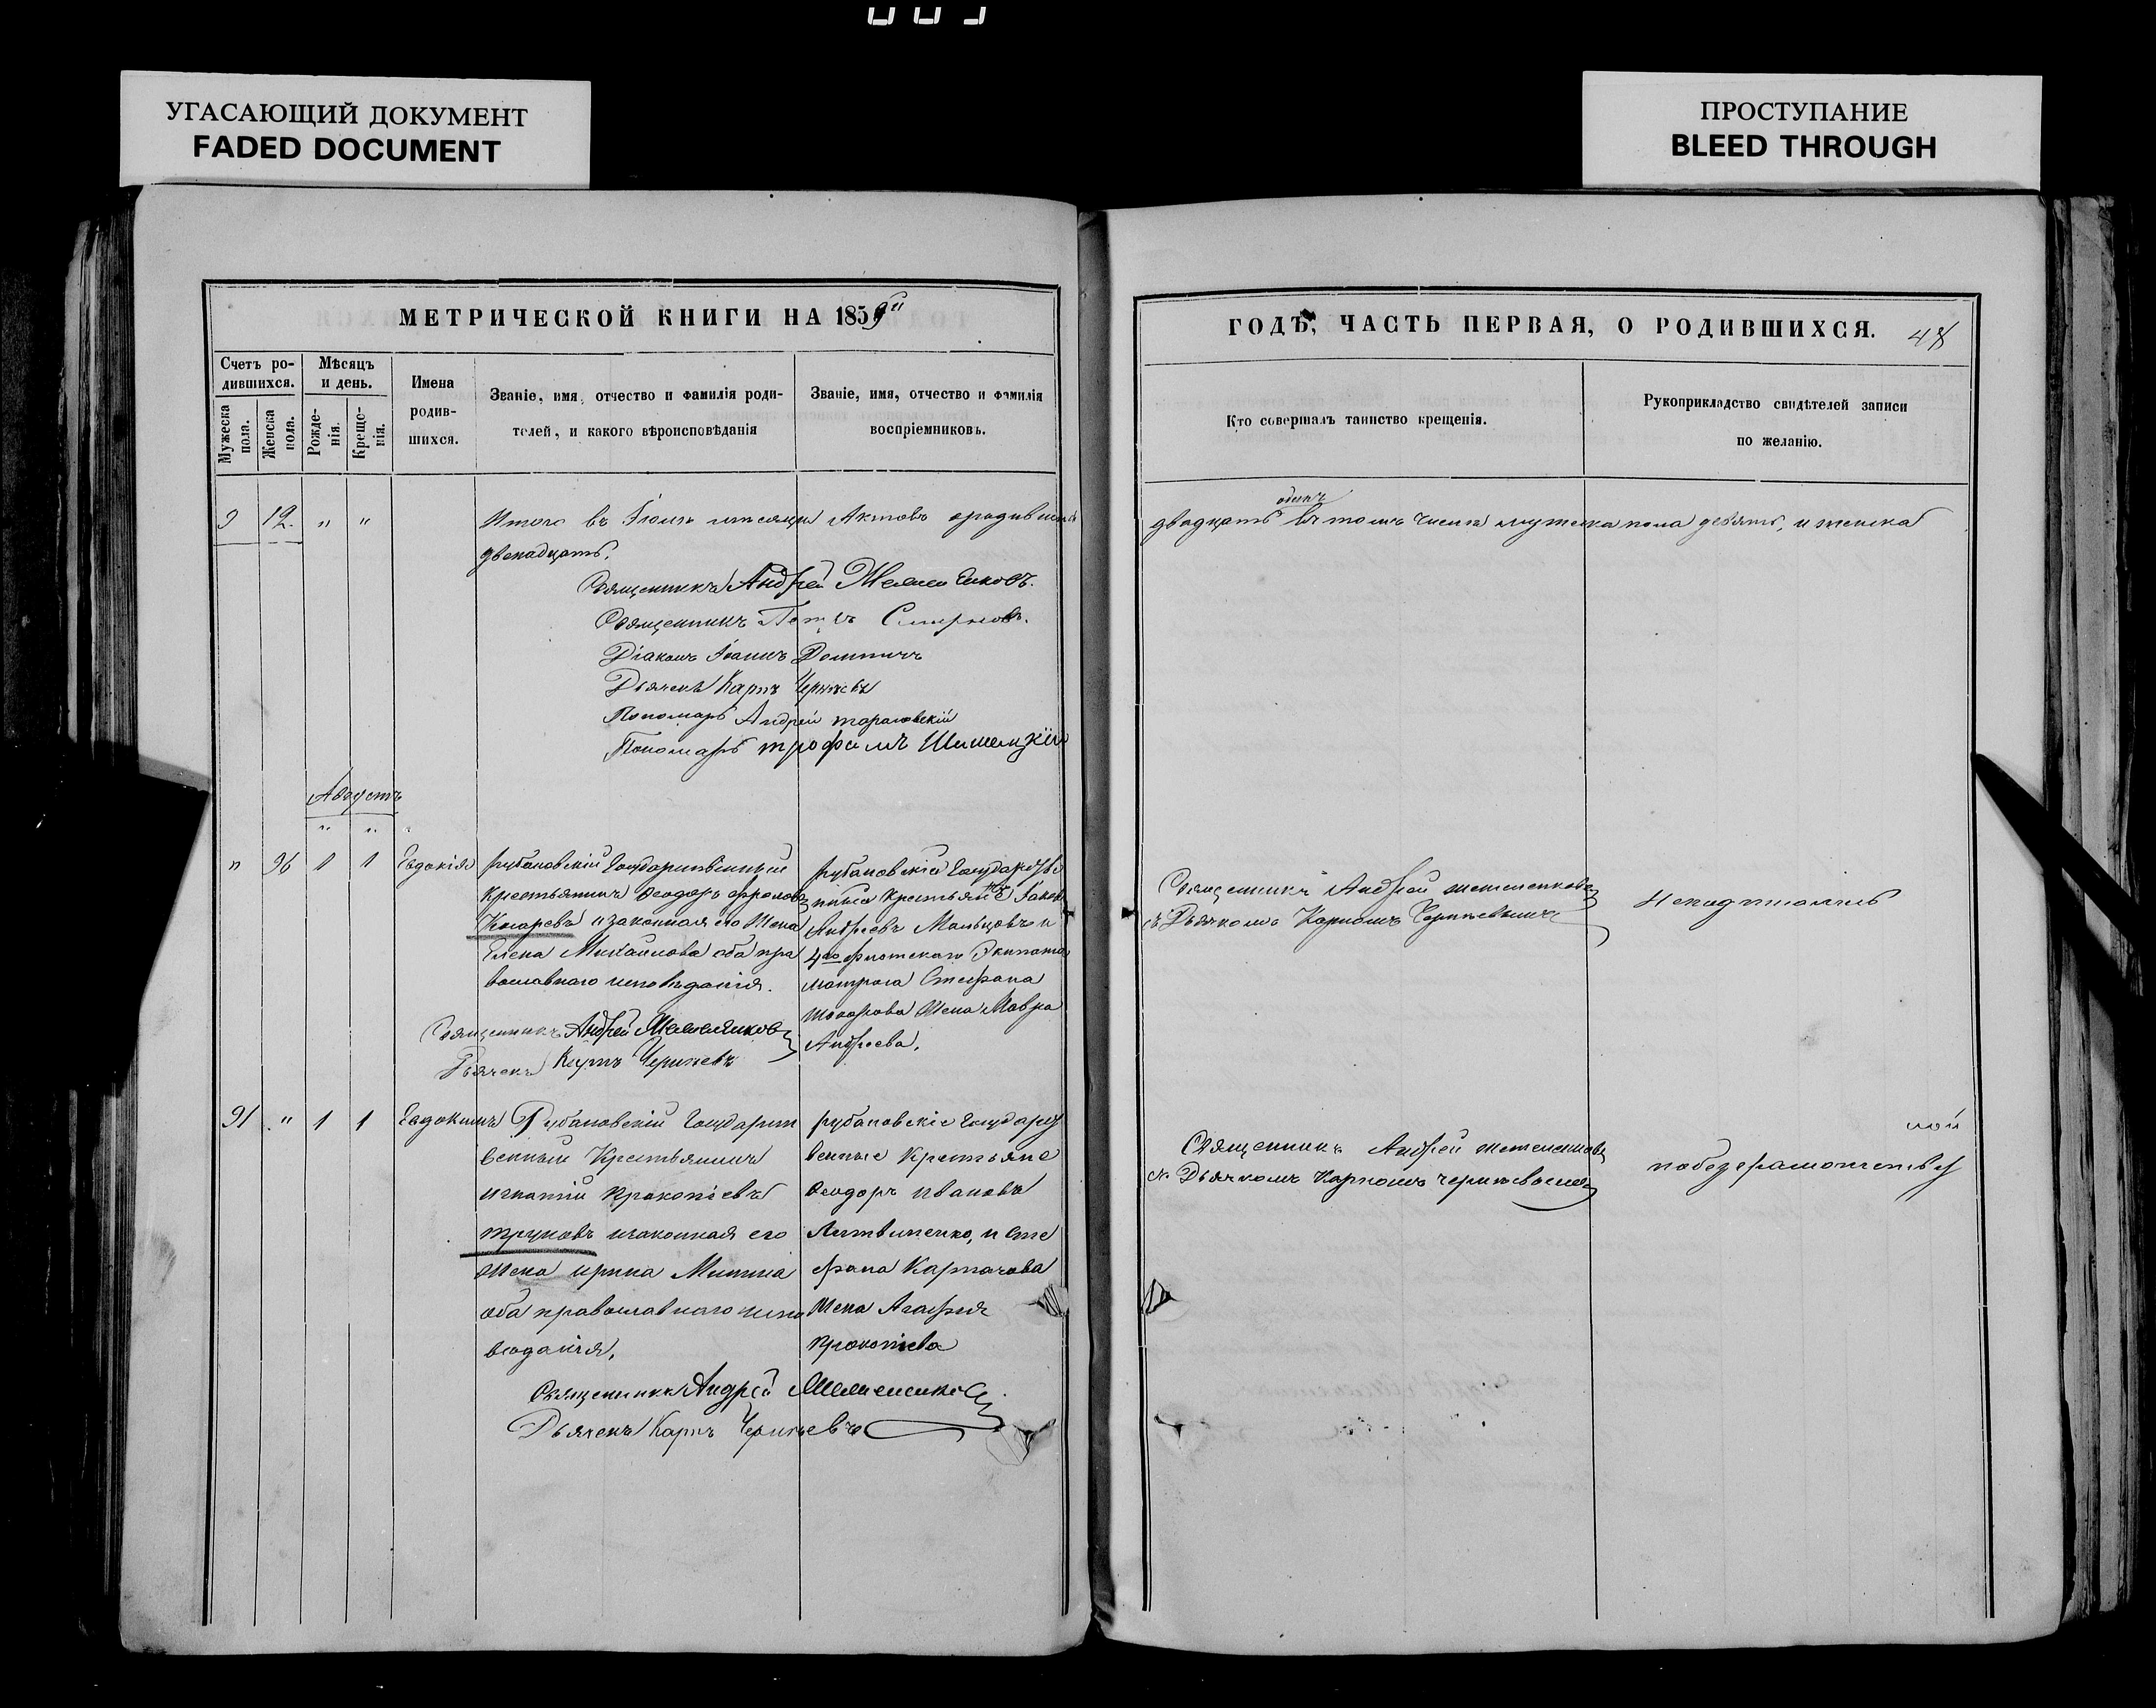 УГАСАЮЩИЙ ДОКУМЕНТ
FADED DOCUMENT
ПРОСТУПАНИЕ
BLEED THROUGH
МЕТРИЧЕСКОЙ КНИГИ НА 1859й
Счетъ ро-
дившихся.
Мужеска
пола.
Женска
пола.
Мѣсяцъ
и день.
Рожде-
нія.
Креще-
нія.
Имена
родив-
шихся.
Званіе, имя, отчество и фамилія роди-
телей, и какого вѣроисповѣданія
Званіе, имя, отчество и фамилія
воспріемниковъ.
9 12. " " Итого въ мѣсяцѣ Актовъ
двенадцать.
Священникъ Андрей
Священникъ Петръ Смирновъ.
Діаконъ Іоаннъ
Дьячекъ Карпъ
Пономарь Андрей
Пономарь трофимъ
Августъ
" "
" 96 1 1 Евдокія
Рубановскій Государственный
Крестьянинъ Феодоръ Фролов
Косаревъ и законная его Жена
Елена Михайлова оба пра
вославного исповѣданія.
Священникъ Андрей
Дьячекъ Карпъ
Рубановскіе Государстве
нные Крестьяне Іаковъ
Андреевъ Мальцовъ и
4го флотскаго Экипажа
матроса Стефана
Жена Мавра
Андреева.
91 " 1 1 Евдокимъ
Рубановскій Государст
венный Крестьянинъ
игнатій Прокопіевъ
труновъ изаконная его
жена ирина Минина
оба православнаго испо
веданія.
Священникъ Андрей
Дьячекъ Карпъ
рубановскіе Государст
венные Крестьяне
Феодоръ ивановъ
Литвиненко, и Сте
фана Карпачова
Жена Агафия
Прокопіева
ГОДЪ, ЧАСТЬ ПЕРВАЯ, О РОДИВШИХСЯ. 48
Кто совершалъ таинство крещенія.
Рукоприкладство свидѣтелей записи
по желанію.
одинъ
двадцать въ томъ числѣ мужеска пола девять, и женска
Священникъ Андрей
съ Дьячкомъ Карпомъ
Священникъ Андрей
съ Дьячкомъ Карпомъ